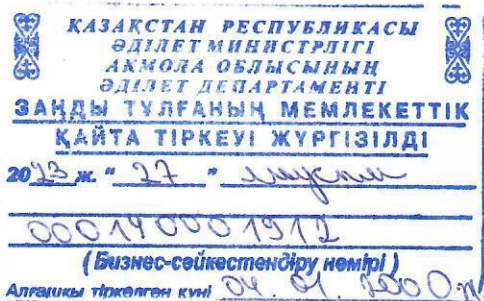 ҚАЗАҚСТАН РЕСПУБЛИКАСЫ
ӘДІЛЕТ МИНИСТРЛІГІ
АҚМОЛА ОБЛЫСЫНЫҢ
ӘДІЛЕТ ДЕПАРТАМЕНТІ
ЗАҢДЫ ТҰЛҒАНЫҢ МЕМЛЕКЕТТІК
ҚАЙТА ТІРКЕУІ ЖҮРГІЗІЛДІ
2023 ж. " 27 "
000140001912
(Бизнес-сәйкестендіру нөмірі)
Алғашқы тіркелген күні 04. 01 2000 ж